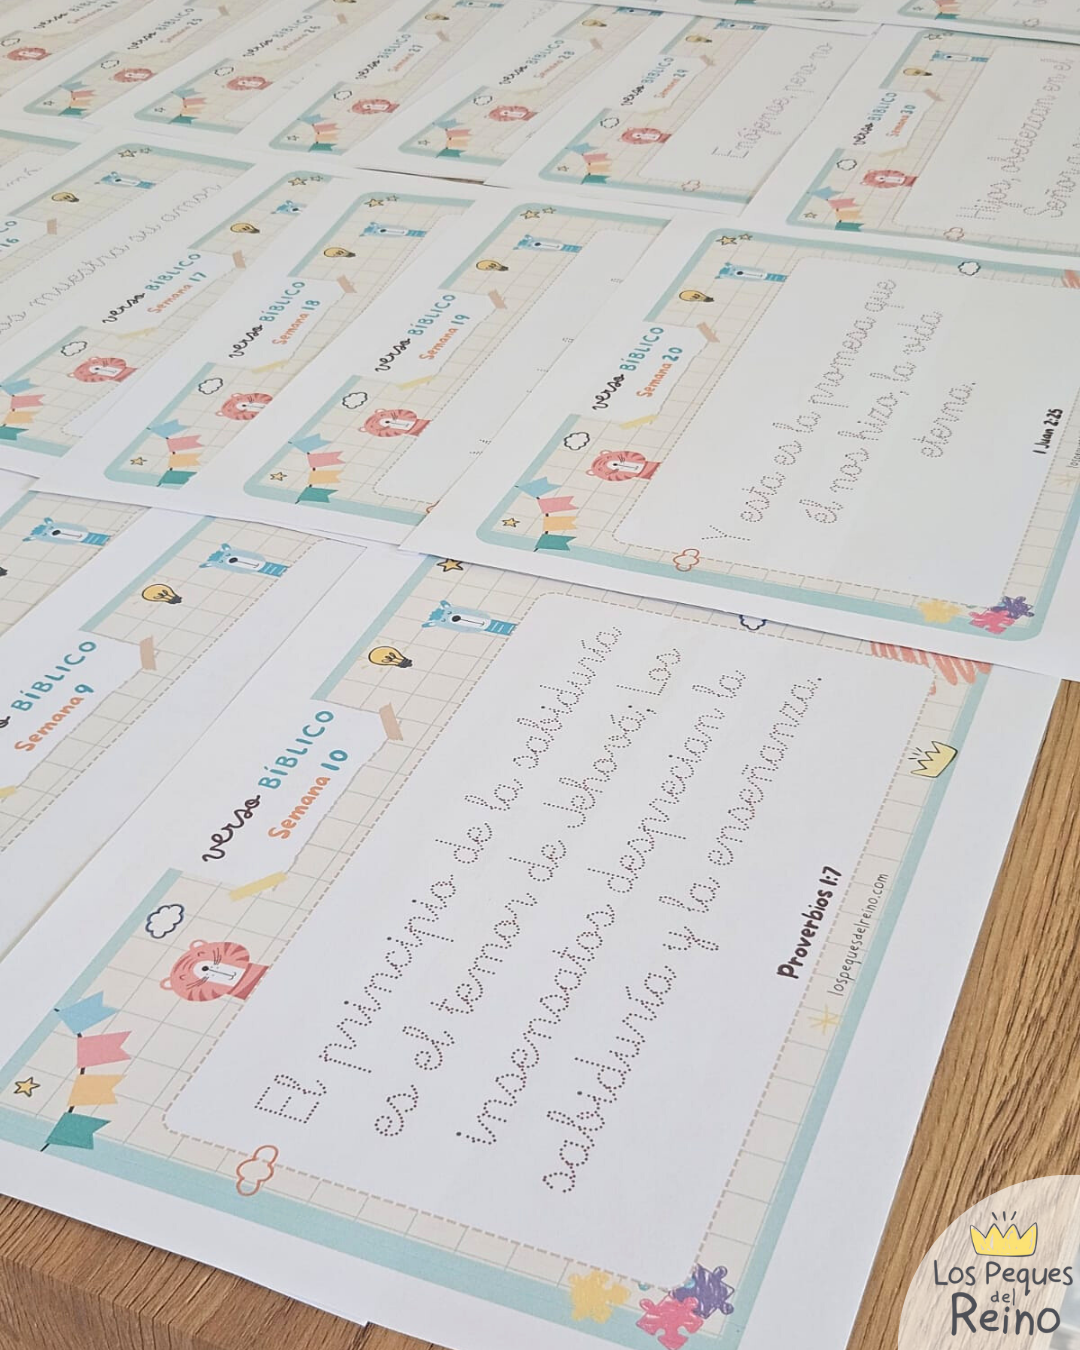 verso BÍBLICO
Semana 24
verso BÍBLICO
Semana 25
verso BÍBLICO
Semana 26
verso BÍBLICO
Semana 27
verso BÍBLICO
Semana 28
verso BÍBLICO
Semana 29
Enójense, pero no
verso BÍBLICO
Semana 30
Hijos, obedezcan en el
Señor a
16
muestra su amor
verso BÍBLICO
Semana 17
verso BÍBLICO
Semana 18
verso BÍBLICO
Semana 19
verso BÍBLICO
Semana 20
Y esta es la promesa que
él nos hizo, la vida
eterna.
1 Juan 2:25
BÍBLICO
Semana 9
verso BÍBLICO
Semana 10
El principio de la sabiduría
es el temor de Jehová; Los
insensatos desprecian la
sabiduría y la enseñanza.
Proverbios 1:7
lospequesdelreino.com
Los Peques
del
Reino